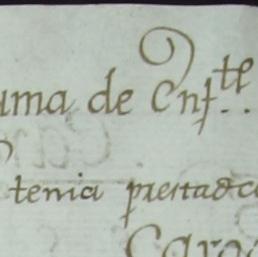 uma de Enfte..
tenia prestado
Caro